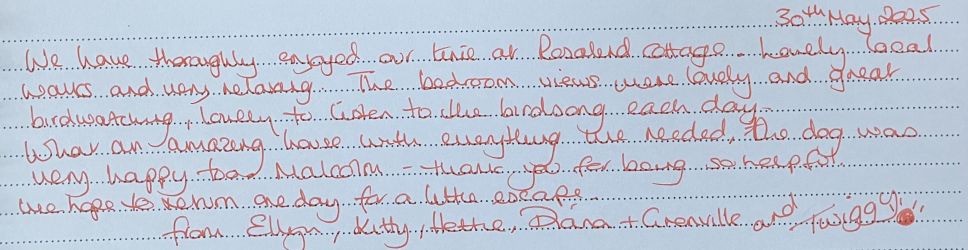 30th May 2025
We have thoroughly enjoyed our time at Rosalend Cottage. Lovely local
walks and very relaxing. The bedroom views were lovely and great
birdwatching, lovely to listen to the birdsong each day.
What an amazing house with everything we needed, the dog was
very happy too Malcolm - thank you for being so helpful.
we hope to return one day for a little escape.
from Ellyn, Kitty, Hettie, Diana + Grenville and Twiggy